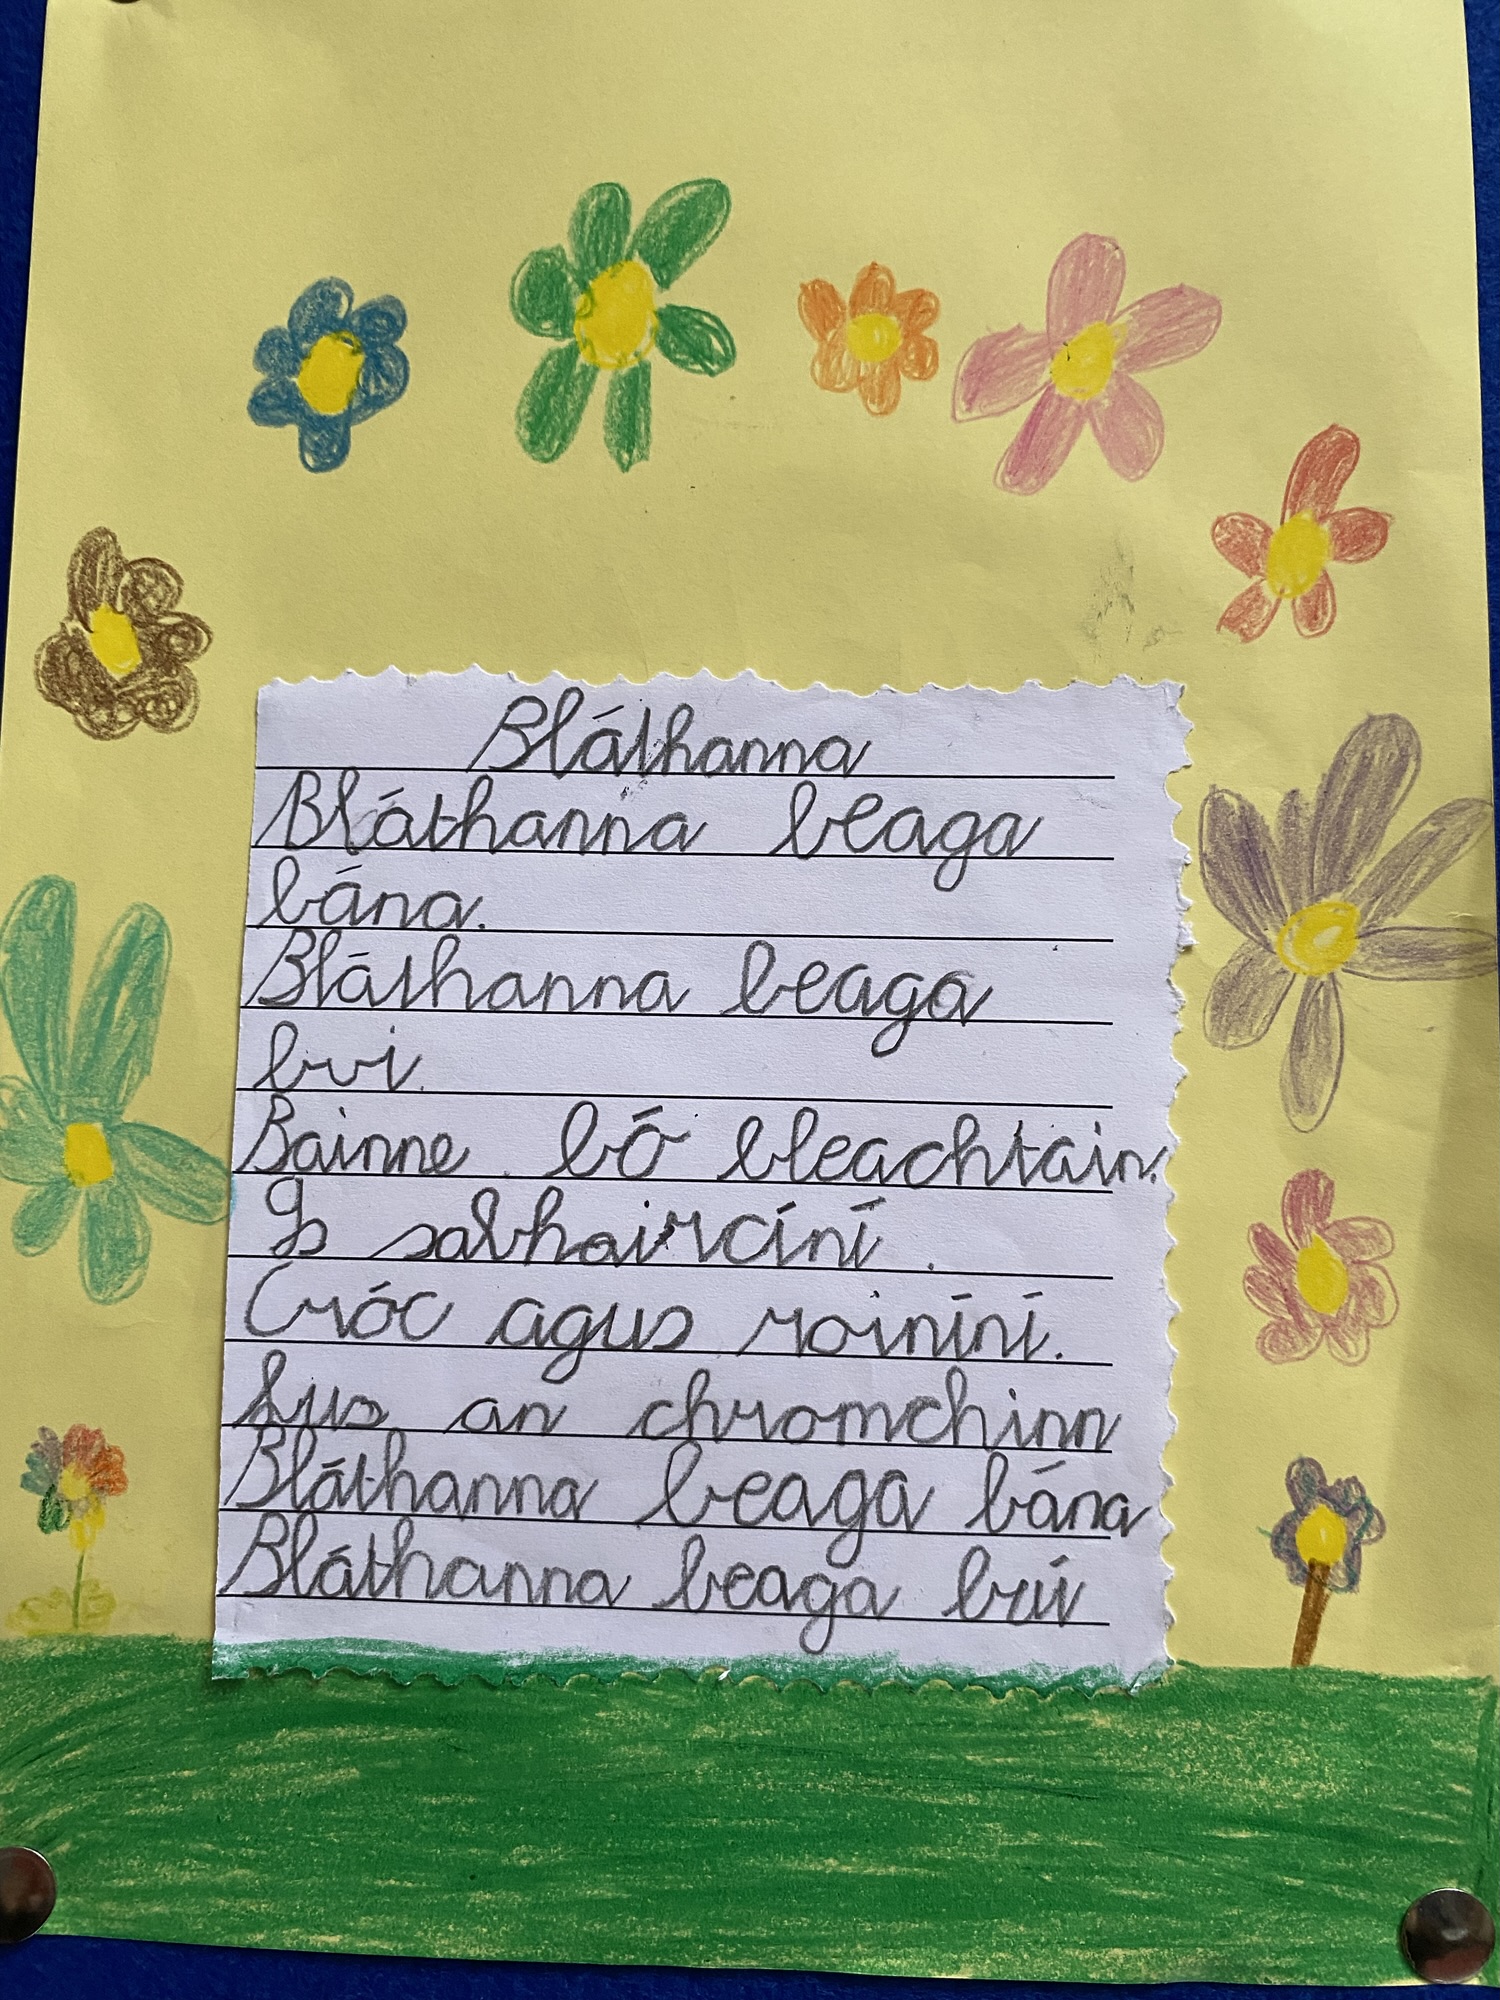 Bláthanna
Bláthanna beaga
bána.
Bláthanna beaga
bui.
Bainne bó bleachtain.
Is sabhaircíní.
Cróc agus roiníní.
Lus an chromchinn
Bláthanna beaga bána
Bláthanna beaga